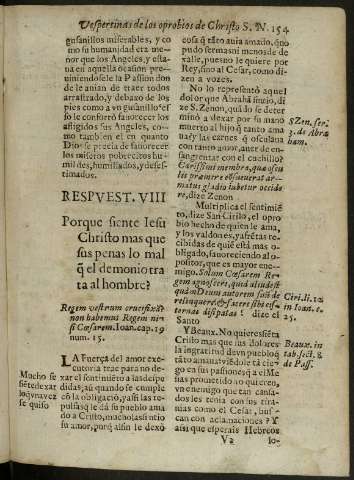 Vespertinas de los oprobios de Christo S. N. 154
gusanillos miserables, y co
mo su humanidad era me-
nor que los Angeles, y esta-
ua en aquella ocasion pre-
uiniendose le la Passion don
de le auian de traer todos
arrastrado, y debaxo de los
pies como a vn gusanillo: es
so le confortò fauorecer los
afligidos sus Angeles, como
tambien el en quanto
Dios se precia de fauorecer
los miseros pobrecitos humil
des, humillados, y deses-
timados.
RESPVEST. VIII
Porque siente Iesu
Christo mas que
sus penas lo mal
q̃ el demonio tra
ta al hombre?
Regem vestrum crucifixã?
non habemus Regem ni-
si Cæsarem. Ioan. cap. 19
num. 15.
Mucho se
siẽte dexar
lo q̃ vna vez
se quiso
LA Fuerça del amor exe-
cutoria trae para no de-
xar el sentimiẽto a las despe
didas; aũ quando se cumple
cõ la obligaciõ, y assi las re-
pulsas q̃ le dà su pueblo ama
do a Cristo, mucho las sintio
su amor, porq̃ aisin le dexò
cosa q̃ tãto auia amado, q̃ no
pudo ser mas ni menos de de
ualle, pues no le quiere por
Rey, sino al Cesar, como di-
zen a vozes.
No lo representò aquel
dolor que Abrahã finxio, di
ze S. Zenon, quãdo se deter
minò a dexar por su mano
muerto al hijo q̃ tanto ama
ua; y las carnes q̃ osculaua
con tanto amor, auer de en-
sangrentar con el cuchillo?
Carissimi membra, quæ oscu
lis premere cõsueuerat ar-
matus gladio iubetur occide
re, dize Zenon
S Zen. ser.
3. de Abra
ham.
Multiplica el sentimiẽ
to, dize San Cirilo, el opro
bio hecho de quien le ama,
y los valdones, y afrẽtas re-
cibidas de quiẽ està mas o-
bligado, fauoreciendo al o-
positor, que es mayor ene-
migo. Solum Cæsarem Re
gem agnoscere, quid aliud est
quam Deum autorem suũ de
relinquere, & facere sibi cis-
ternas dissipatas? dize el
Santo
Ciri. li. 12
in Ioan. c.
25.
Y Beaux. No quiere siẽta
Cristo mas que sus dolores
la ingratitud de vn pueblo q̃
tãto amaua, viẽdole tã cie-
go en sus passiones, q̃ a el Me
sias prometido no quiere, o
vn enemigo que tan cansa-
dos les tenia con sus tira-
nias como el Cesar, bus-
can con aclamaciones? Y
assi que esperais Hebreos
Beaux. in
tab. sect. 8
de Pass.
V2 lo-